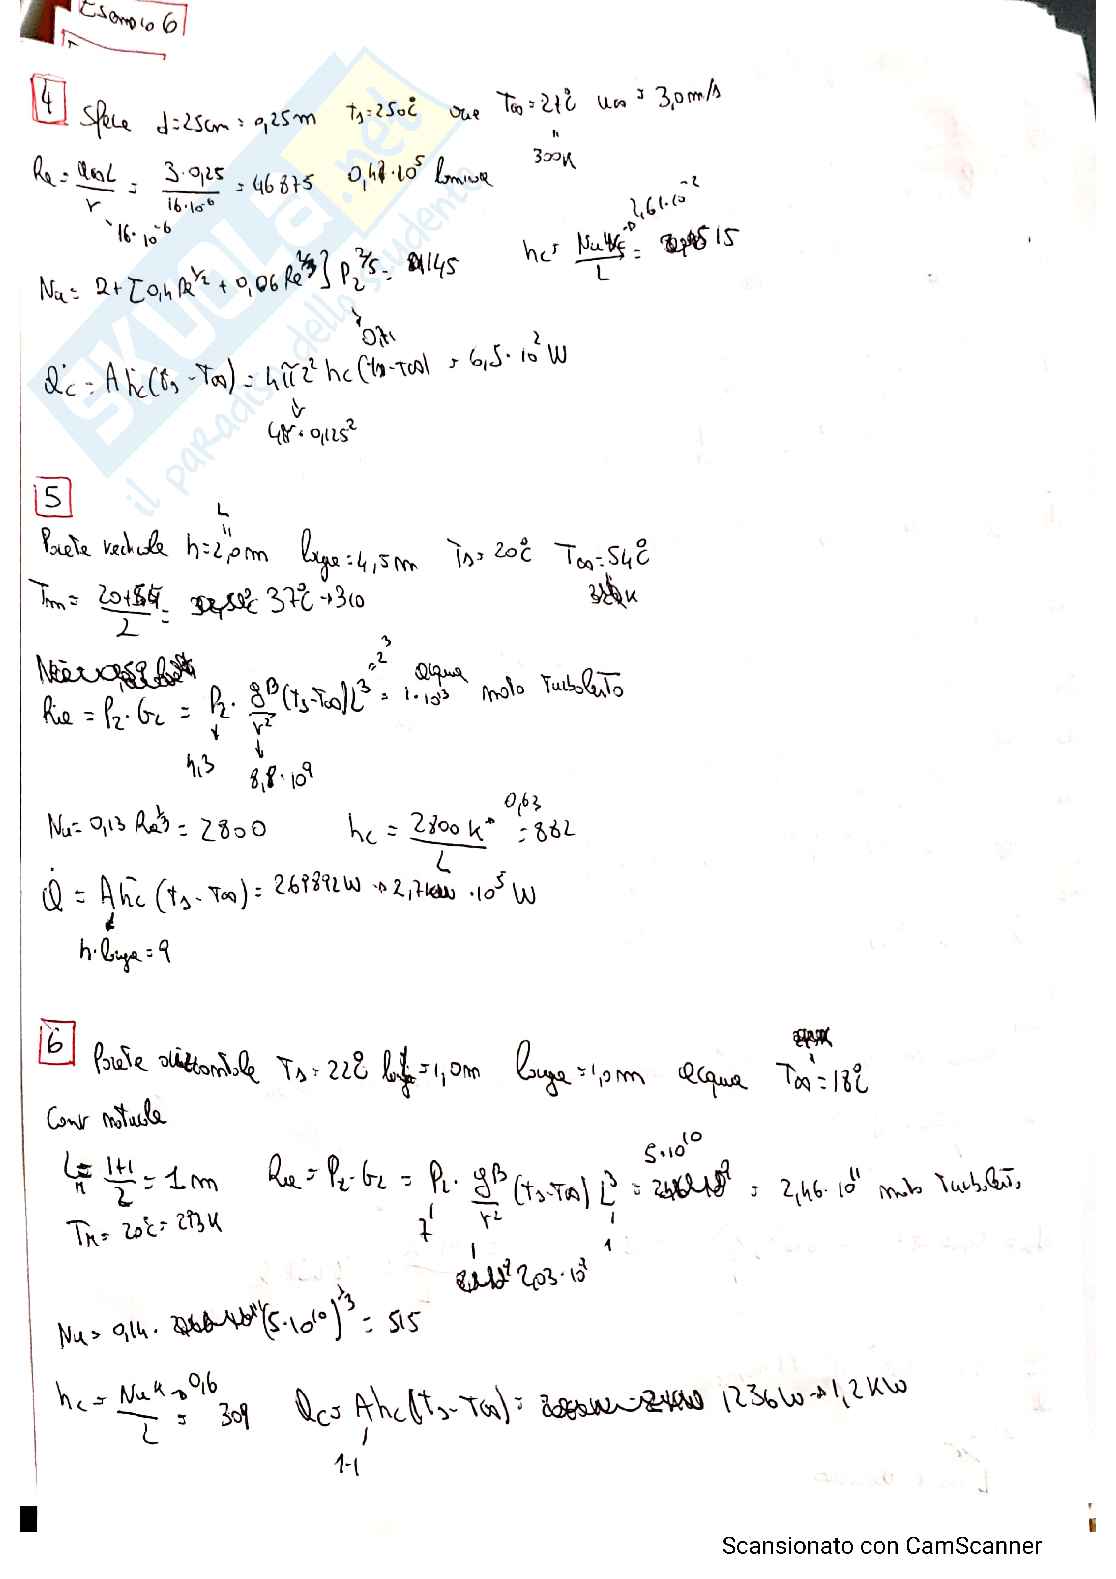 Esempio 6
4 Sfera d=25cm = 0,25m Ts=250°C aria T∞=27°C u∞ = 3,0 m/s
300K
Re = u∞L/ν = 3·0,25/16·10^-6 = 46875 0,47·10^5 laminare
16·10^-6
Nu = 2+[0,4Re^1/2 + 0,06Re^2/3] Pr^2/5 = 145 hc = Nu k/L = 15
2,61·10^-2
0,71
Q̇c = A hc(Ts - T∞) = 4πr² hc(Ts-T∞) = 6,5·10² W
4π·0,125²
5
Parete verticale h=2,0m larga=4,5m Ts=20°C T∞=54°C
L
Tm = 20+54/2 = 37°C → 310
Ra = Pr·Gr = Pr· gβ/ν² (Ts-T∞)L³ = 1·10^13 moto turbolento
=2³ acqua
4,3 8,8·10^9
Nu = 0,13 Ra^1/3 = 2800 hc = 2800 k/L = 882
0,63
Q̇ = A hc (Ts - T∞) = 269892W → 2,7 ·10^5 W
h·larga = 9
6 Parete orizzontale Ts=22°C lunga=1,0m larga=1,0m acqua T∞=18°C
Conv naturale
L = 1+1/2 = 1m Ra = Pr·Gr = Pr· gβ/ν² (Ts-T∞) L³ = 5·10^10 = 2,46·10^11 moto turbolento
Tm = 20°C = 293K 7 1
2,03·10^9
Nu = 0,14· (5·10^10)^1/3 = 515
hc = Nu k/L = 309 Qc = A hc(Ts-T∞) = 1236W → 1,2KW
0,6
1·1
SKUOLA.net
il paradiso dello studente
Scansionato con CamScanner